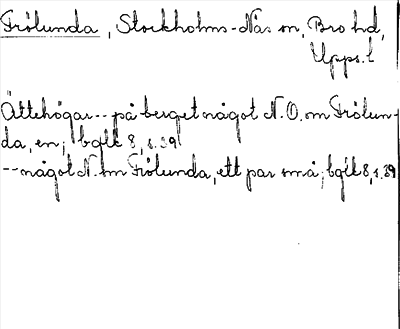 Frölunda, Stockholms-Näs sn, Bro hd,
Upps. l
Ättehögar -- på berget något N.O. om Frölun-
da, en; bgfk 8, s. 39
-- något N. om Frölunda, ett par små; bgfk 8, s. 39